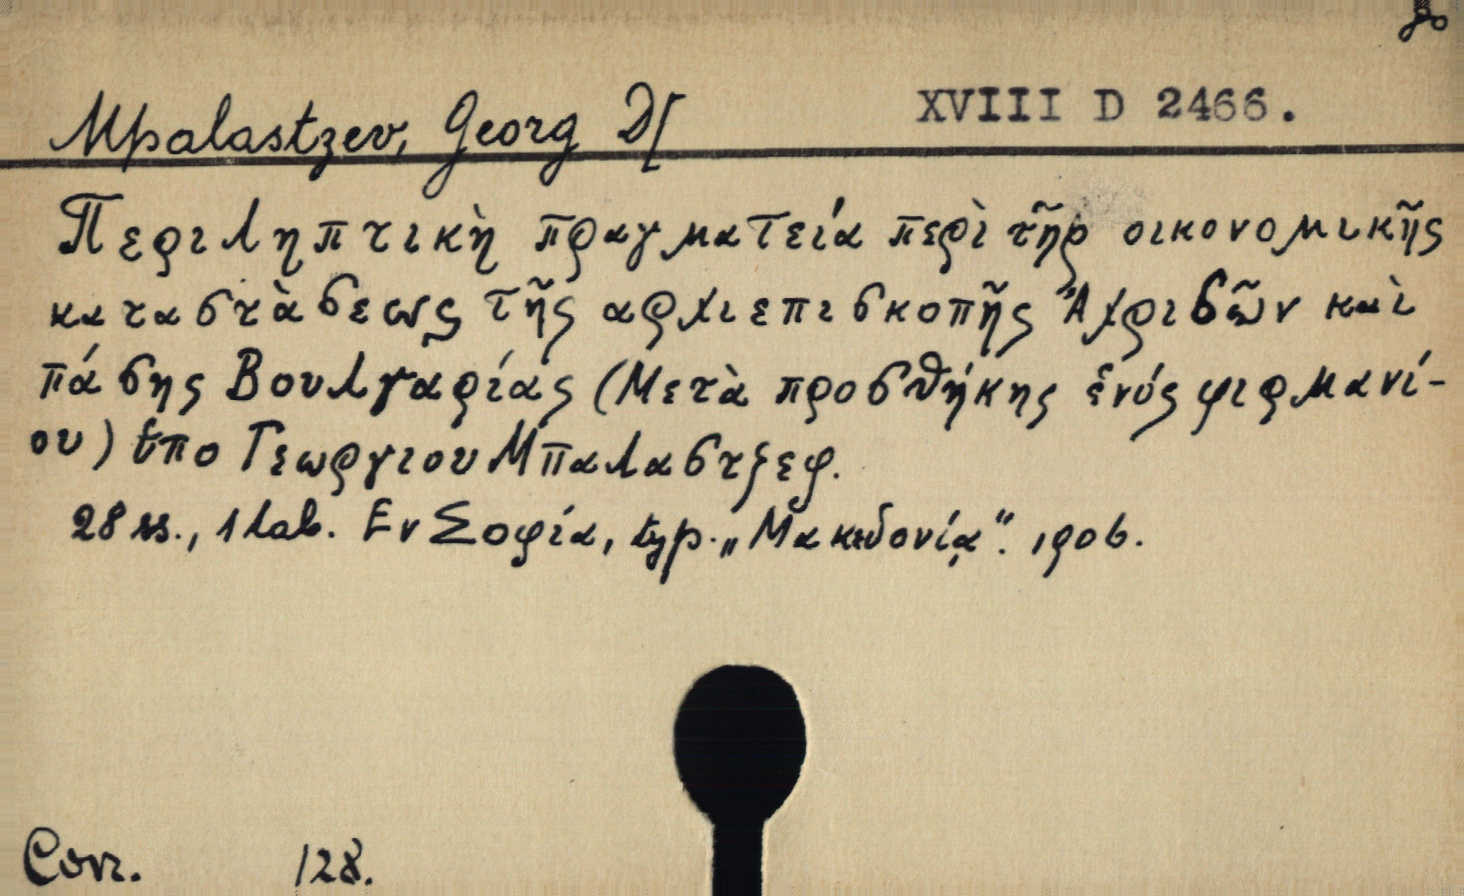 Mpalastzev, Georg D[
XVIII D 2466.
Περιληπτικὴ πραγματεία περὶ τῆρ οικονομικῆς
καταστὰσεως τῆς αρχιεπισκοπῆς Ἀχριδῶν καὶ
πάσης Βουλγαρίας (Μετὰ προσθήκης ἑνός φιρμανί-
ου) ὑπο Γεωργιου Μπαλαστζεφ.
28 ss., 1 tab. Εν Σοφία, typ. „Μακεδονίᾳ“. 1906.
Corr. 128.